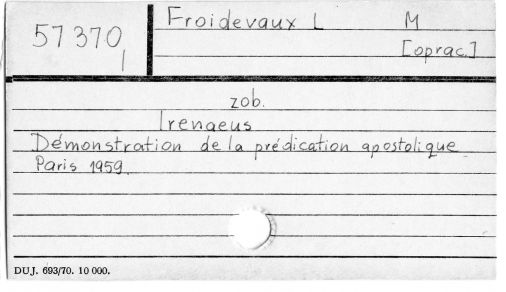 57370 Froidevaux L M
I [oprac.]
zob.
Irenaeus
Démonstration de la prédication apostolique
Paris 1959.
DUJ. 693/70. 10 000.